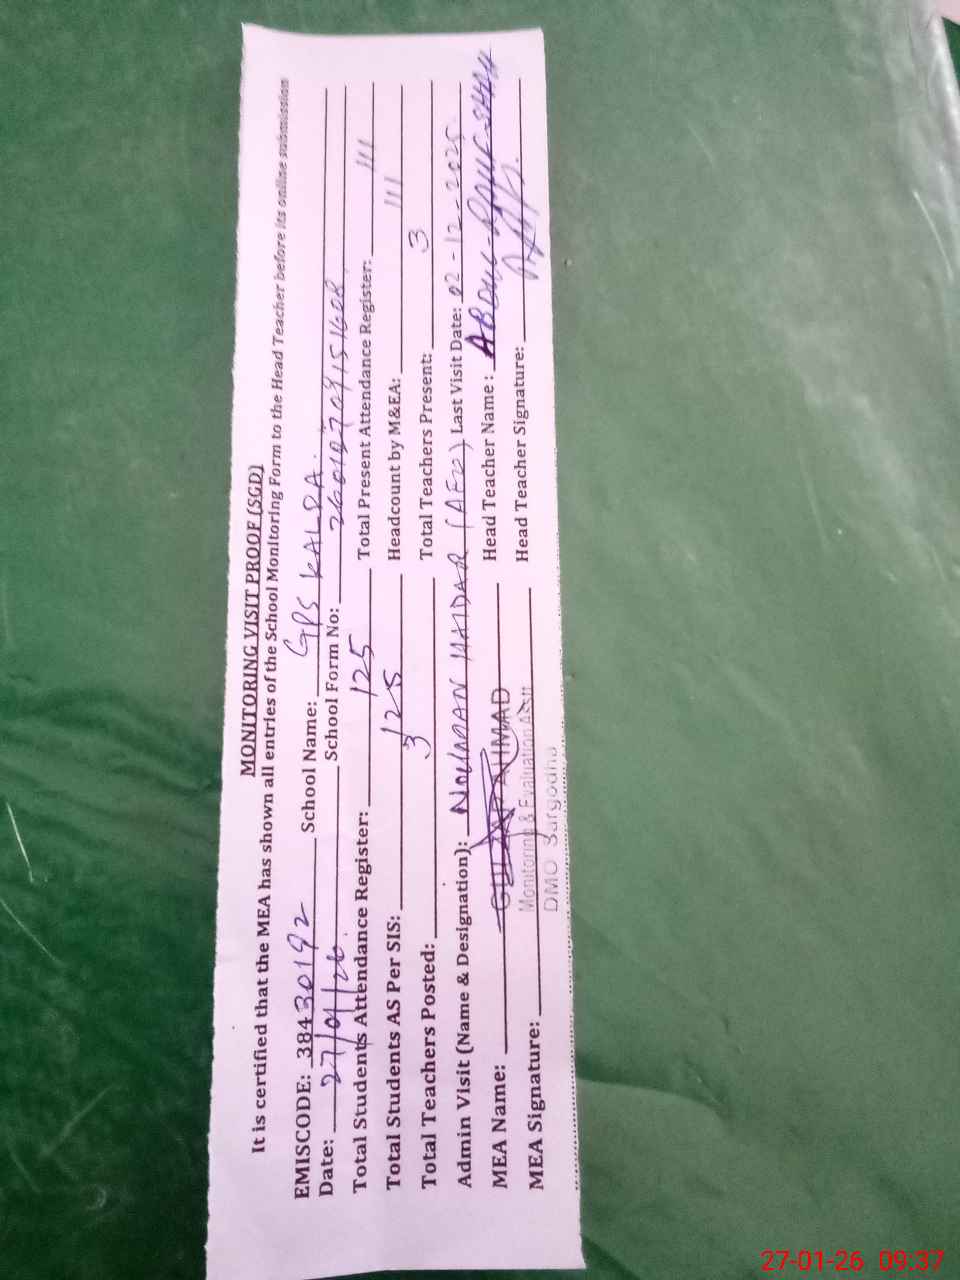 MONITORING VISIT PROOF (SGD)
It is certified that the MEA has shown all entries of the School Monitoring Form to the Head Teacher before its online submission
EMISCODE: 38430192 School Name: GPS KALRA.
Date: 27/01/26. School Form No:
Total Students Attendance Register: 125 Total Present Attendance Register: 111
Total Students AS Per SIS: 125 Headcount by M&EA: 111
Total Teachers Posted: 3 Total Teachers Present: 3
Admin Visit (Name & Designation): NOUMAN HAIDAR (AEO) Last Visit Date: 02-12-2025.
MEA Name: GULZAR AHMAD Head Teacher Name: ABDUL
MEA Signature: Monitoring & Evaluation Asstt Head Teacher Signature:
DMO Sargodha
27-01-26 09:37